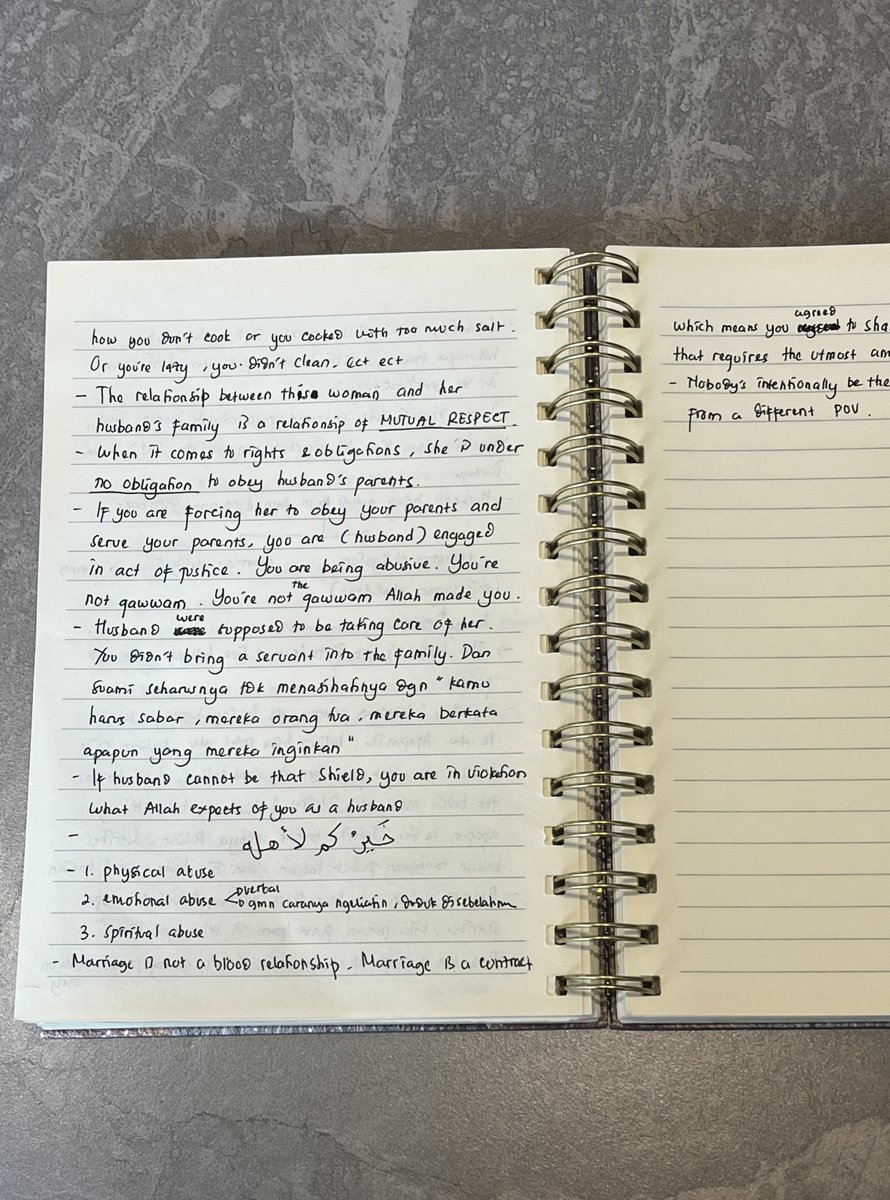 how you don't cook or you cooked with too much salt.
Or you're lazy, you didn't clean, ect ect
- The relationship between this woman and her
husband's family is a relationsip of MUTUAL RESPECT.
- When it comes to rights & obligations, she is under
no obligation to obey husband's parents.
- If you are forcing her to obey your parents and
serve your parents, you are (husband) engaged
in act of justice. You are being abusive. You're
not qawwam. You're not the qawwam Allah made you.
- Husband were supposed to be taking care of her.
You didn't bring a servant into the family. Dan
suami seharusnya tdk menasihatinya dgn "kamu
harus sabar, mereka orang tua, mereka berkata
apapun yang mereka inginkan"
- If husband cannot be that Shield, you are in violation
what Allah expects of you as a husband
- خَيْرُ كم لأهله
- 1. physical abuse
2. emotional abuse verbal
gmn caranya ngeliatin, duduk disebelahmu
3. spiritual abuse
- Marriage is not a blood relationship. Marriage is a contract
which means you agreed to sha
that requires the utmost am
- Nobody's intentionally be the
from a different POV.